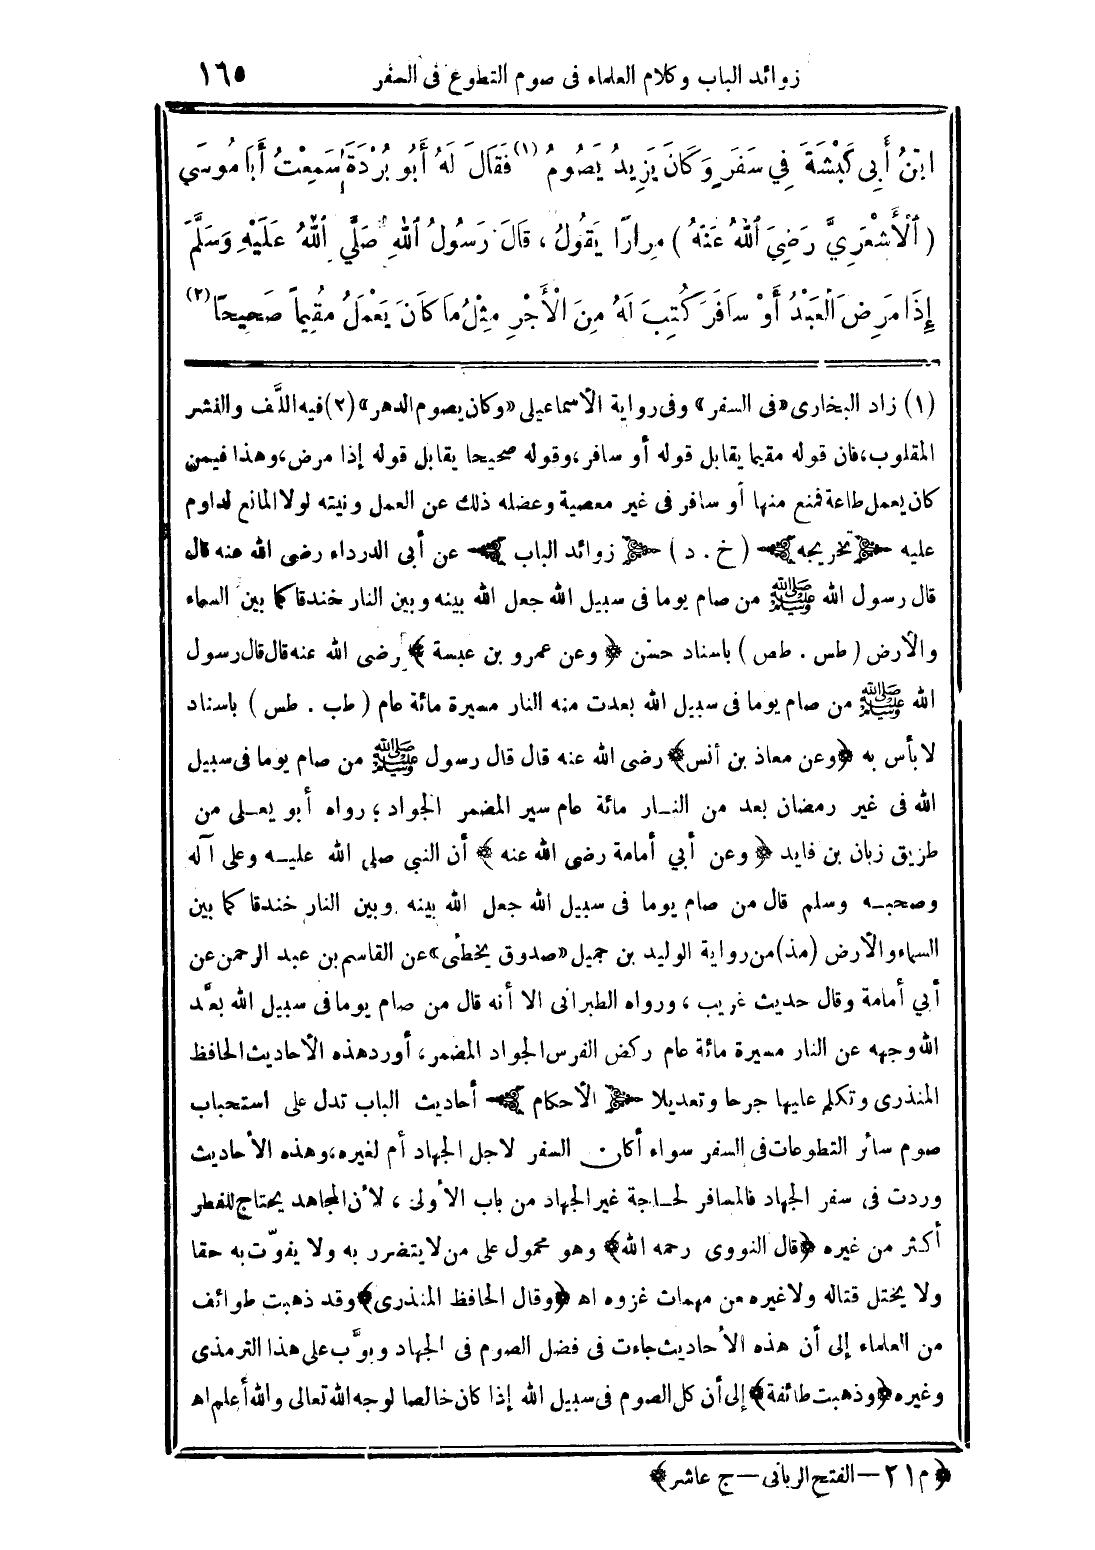 زوائد الباب وكلام العلماء فى صوم التطوع فى السفر ١٦٥
ابْنُ أَبِى كَبْشَةَ فِي سَفَرٍ وَكَانَ يَزِيدُ يَصُومُ (١) فَقَالَ لَهُ أَبُو بُرْدَةَ سَمِعْتُ أَبَا مُوسَي
(الْأَشْعَرِيَّ رَضِيَ اللهُ عَنْهُ) مِرارًا يَقُولُ، قَالَ رَسُولُ اللهِ صَلَّي اللهُ عَلَيْهِ وَسَلَّمَ
إِذَا مَرِضَ الْعَبْدُ أَوْ سافَرَ كُتِبَ لَهُ مِنَ الْأَجْرِ مِثْلُ ما كَانَ يَعْمَلُ مُقِيماً صَحِيحًا (٢)
(١) زاد البخارى «فى السفر» وفى رواية الأسماعيلى «وكان يصوم الدهر» (٢) فيه اللَّف والنشر
المقلوب، فان قوله مقيما يقابل قوله أو سافر، وقوله صحيحا يقابل قوله إذا مرض، وهذا فيمن
كان يعمل طاعة فمنع منها أو سافر فى غير معصية وعضله ذلك عن العمل ونيته لولا المانع لداوم
عليه ﴿تخريجه﴾ (خ . د) ﴿زوائد الباب﴾ عن أبى الدرداء رضى الله عنه قال
قال رسول الله ﷺ من صام يوما فى سبيل الله جعل الله بينه وبين النار خندقا كما بين السماء
والأرض (طس . طص) باسناد حسن ﴿وعن عمرو بن عبسة﴾ رضى الله عنه قال قال رسول
الله ﷺ من صام يوما فى سبيل الله بعدت منه النار مسيرة مائة عام (طب . طس) باسناد
لا بأس به ﴿وعن معاذ بن أنس﴾ رضى الله عنه قال قال رسول ﷺ من صام يوما فى سبيل
الله فى غير رمضان بعد من النــار مائة عام سير المضمر الجواد؛ رواه أبو يعــلى من
طريق زبان بن فايد ﴿وعن أبي أمامة رضى الله عنه﴾ أن النبي صلى الله عليــه وعلى آله
وصحبــه وسلم قال من صام يوما فى سبيل الله جعل الله بينه وبين النار خندقا كما بين
السماء والأرض (مذ) من رواية الوليد بن جميل «صدوق يخطئ» عن القاسم بن عبد الرحمن عن
أبي أمامة وقال حديث غريب، ورواه الطبرانى الا أنه قال من صام يوما فى سبيل الله بعَّد
الله وجهه عن النار مسيرة مائة عام ركض الفرس الجواد المضمر، أورد هذه الأحاديث الحافظ
المنذرى وتكلم عليها جرحا وتعديلا ﴿الأحكام﴾ أحاديث الباب تدل على استحباب
صوم سائر التطوعات فى السفر سواء أكان السفر لاجل الجهاد أم لغيره، وهذه الأحاديث
وردت فى سفر الجهاد فالمسافر لحــاجة غير الجهاد من باب الأولى، لأن المجاهد يحتاج للفطر
أكثر من غيره ﴿قال النووى رحمه الله﴾ وهو محمول على من لا يتضرر به ولا يفوّت به حقا
ولا يختل قتاله ولا غيره من مهمات غزوه اهـ ﴿وقال الحافظ المنذرى﴾ وقد ذهبت طوائف
من العلماء إلى أن هذه الأحاديث جاءت فى فضل الصوم فى الجهاد وبوَّب على هذا الترمذى
وغيره ﴿وذهبت طائفة﴾ إلى أن كل الصوم فى سبيل الله إذا كان خالصا لوجه الله تعالى والله أعلم اهـ
﴿م ٢١ — الفتح الربانى — ج عاشر﴾